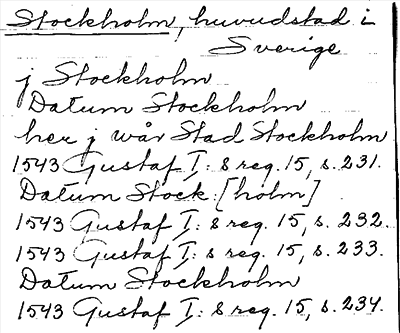 Stockholm, huvudstad i
Sverige
j Stockholm
Datum Stockholm
her j wår Stad Stockholm
1543 Gustaf I: s reg. 15, s. 231.
Datum Stock [holm]
1543 Gustaf I: s reg. 15, s. 232.
1543 Gustaf I: s reg. 15, s. 233.
Datum Stockholm
1543 Gustaf I: s reg. 15, s. 234.